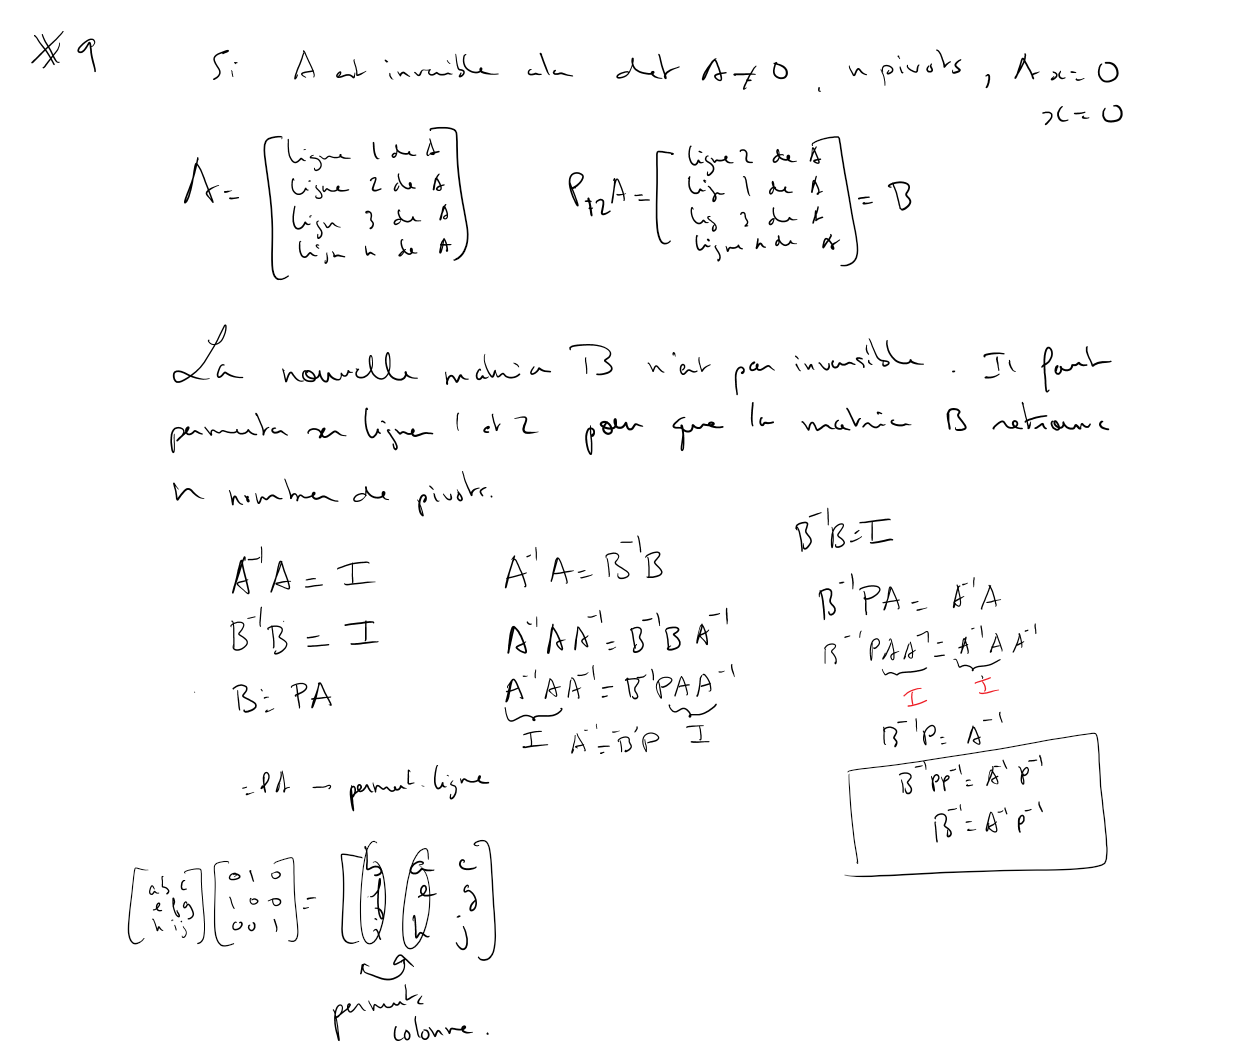 # 9
Si A est inversible alors det A ≠ 0, n pivots, Ax = 0
x = 0
A = [ligne 1 de A
ligne 2 de A
ligne 3 de A
lign n de A]
P₁₂A = [ligne 2 de A
lign 1 de A
lig 3 de A
ligne n de A] = B
La nouvelle matrice B n'est pas inversible. Il faut
permuter ses lignes 1 et 2 pour que la matrice B retrouve
n nombres de pivots.
A⁻¹A = I
B⁻¹B = I
B = PA
= PA → permut. ligne
A⁻¹A = B⁻¹B
A⁻¹AA⁻¹ = B⁻¹BA⁻¹
A⁻¹AA⁻¹ = B⁻¹PAA⁻¹
I A⁻¹ = B⁻¹P I
B⁻¹B = I
B⁻¹PA = A⁻¹A
B⁻¹PAA⁻¹ = A⁻¹AA⁻¹
I I
B⁻¹P = A⁻¹
B⁻¹PP⁻¹ = A⁻¹P⁻¹
B⁻¹ = A⁻¹P⁻¹
[a b c
e f g
h i j] [0 1 0
1 0 0
0 0 1] = [b a c
f e g
i h j]
permute
colonne.